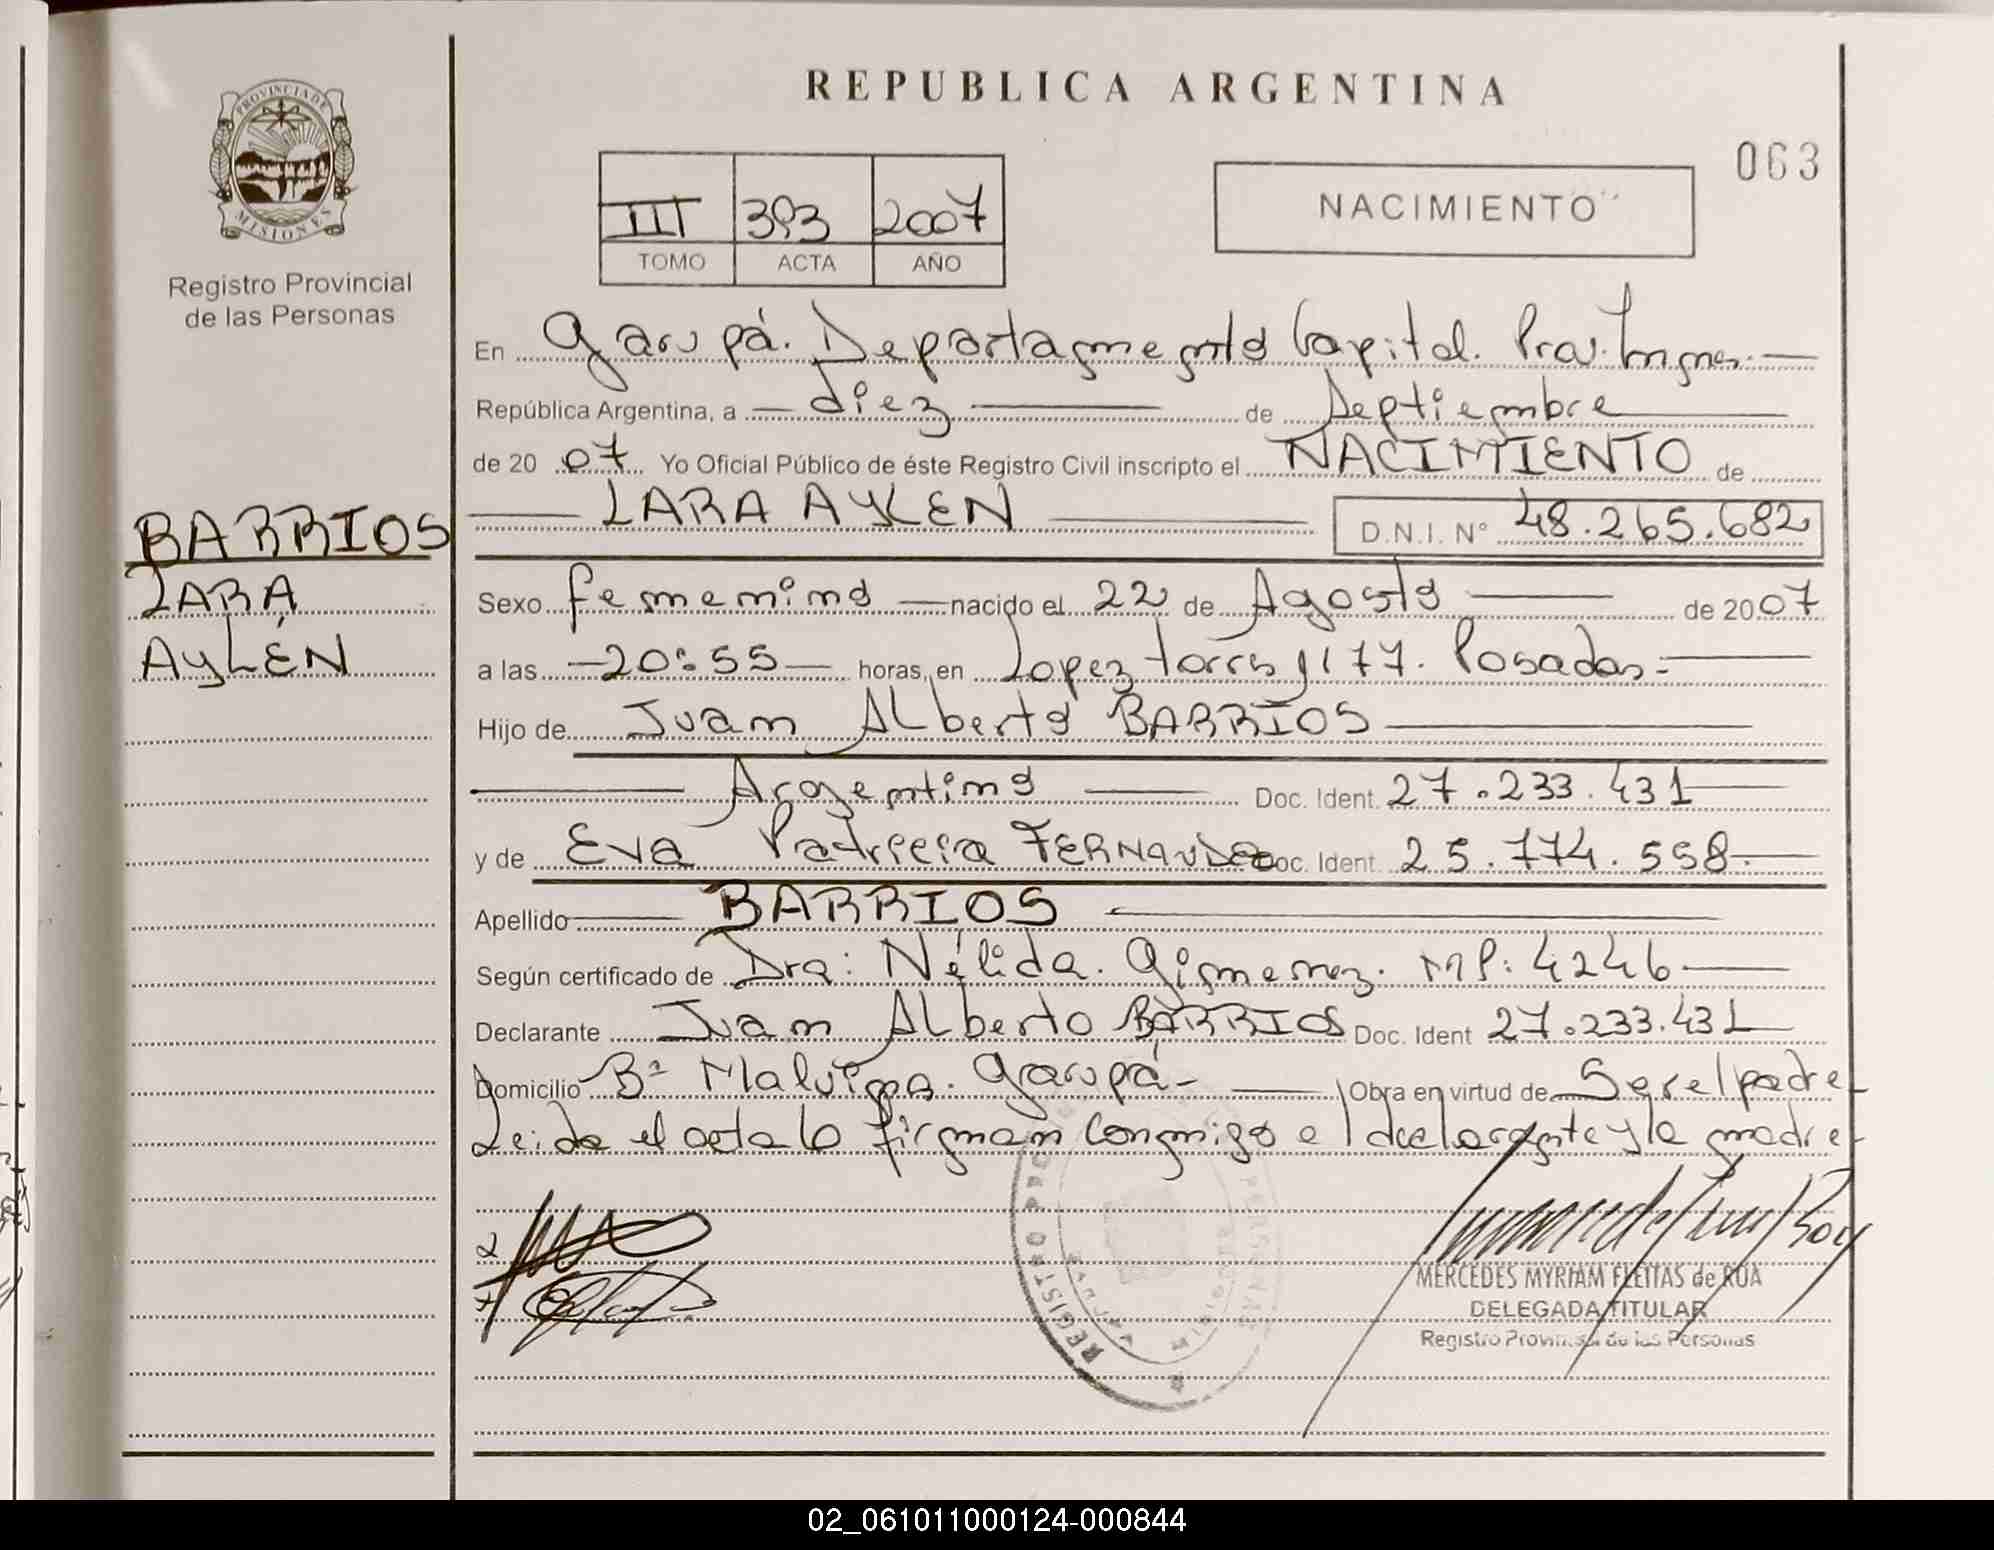 PROVINCIA DE
MISIONES
Registro Provincial
de las Personas
BARRIOS
LARA
AYLÉN
REPUBLICA ARGENTINA
063
III 393 2007
TOMO ACTA AÑO
NACIMIENTO
En Garupá. Departamento Capital. Prov. Misiones.
República Argentina, a diez de Septiembre
de 2007 Yo Oficial Público de éste Registro Civil inscripto el NACIMIENTO de
LARA AYLEN D.N.I. Nº 48.265.682
Sexo femenino nacido el 22 de Agosto de 2007
a las 20:55 horas, en Lopez Torres 1177. Posadas.
Hijo de Juan Alberto BARRIOS
Argentino Doc. Ident. 27.233.431
y de Eva Patricia FERNANDEZ Doc. Ident. 25.774.558.
Apellido BARRIOS
Según certificado de Dra: Nélida. Gimenez. MP: 4246
Declarante Juan Alberto BARRIOS Doc. Ident 27.233.431
Domicilio Bº Malvinas. Garupá- Obra en virtud de Ser el padre
Leida el acta la firman conmigo el declarante y la madre
MERCEDES MYRIAM FLEITAS de RUA
DELEGADA TITULAR
Registro Provincial de las Personas
02_061011000124-000844